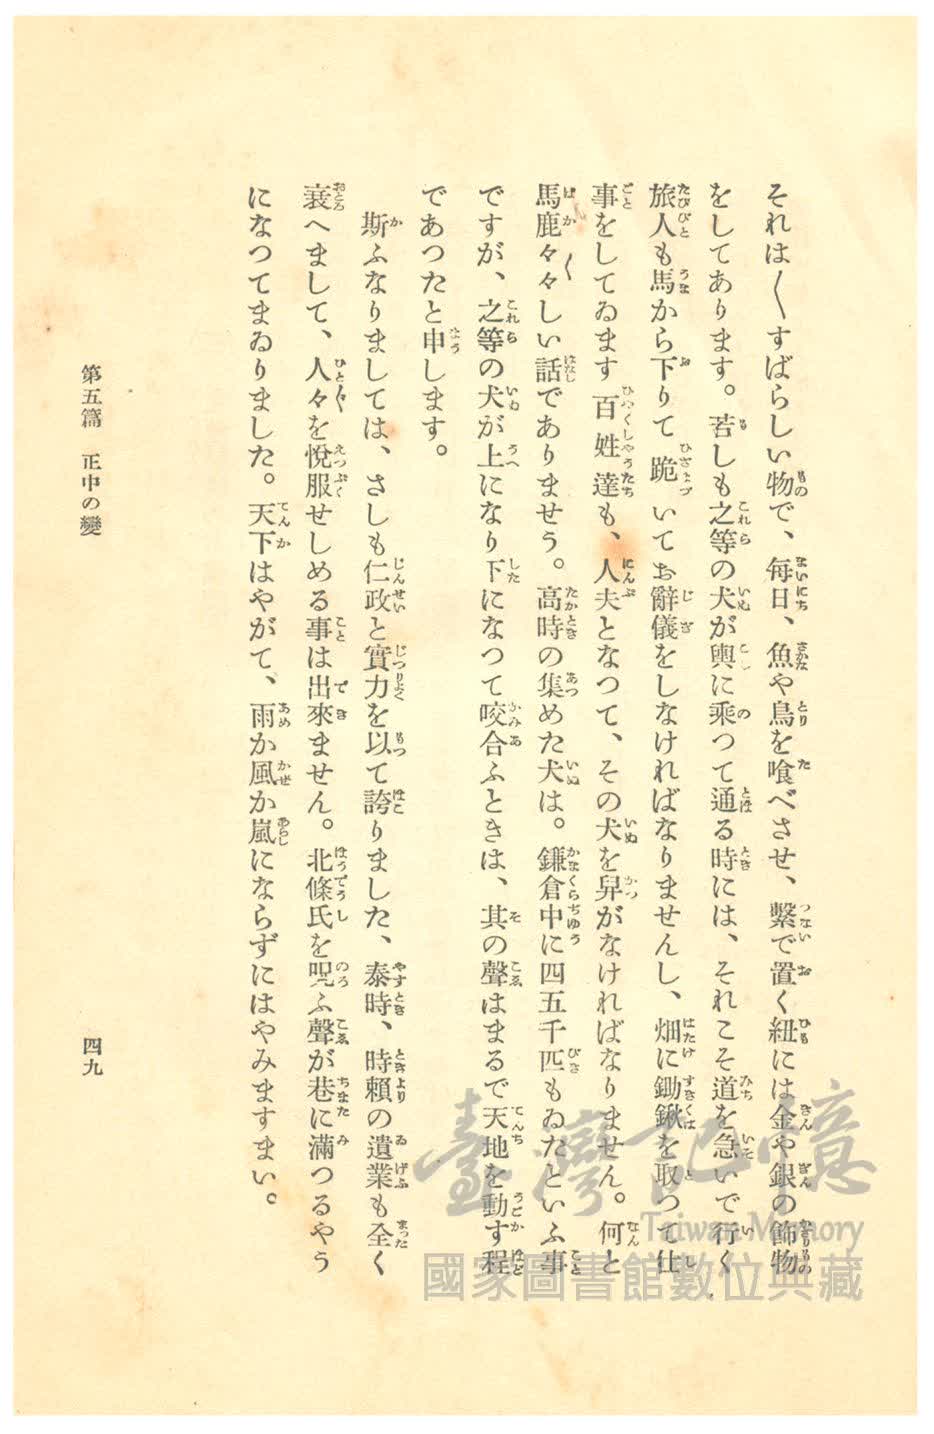 それは〱すばらしい物で、毎日、魚や鳥を喰べさせ、繫で置く紐には金や銀の飾物
をしてあります。若しも之等の犬が輿に乘つて通る時には、それこそ道を急いで行く
旅人も馬から下りて跪いてお辭儀をしなければなりませんし、畑に鋤鍬を取つて仕
事をしてゐます百姓達も、人夫となつて、その犬を舁がなければなりません。何と
馬鹿々々〱しい話でありませう。高時の集めた犬は。鎌倉中に四五千匹もゐたといふ事
ですが、之等の犬が上になり下になつて咬合ふときは、其の聲はまるで天地を動す程
であつたと申します。
斯ふなりましては、さしも仁政と實力を以て誇りました、泰時、時賴の遺業も全く
衰へまして、人々を悅服せしめる事は出來ません。北條氏を呪ふ聲が巷に滿つるやう
になつてまゐりました。天下はやがて、雨か風か嵐にならずにはやみますまい。
第五篇　正中の變
四九
臺灣記憶
Taiwan Memory
國家圖書館數位典藏